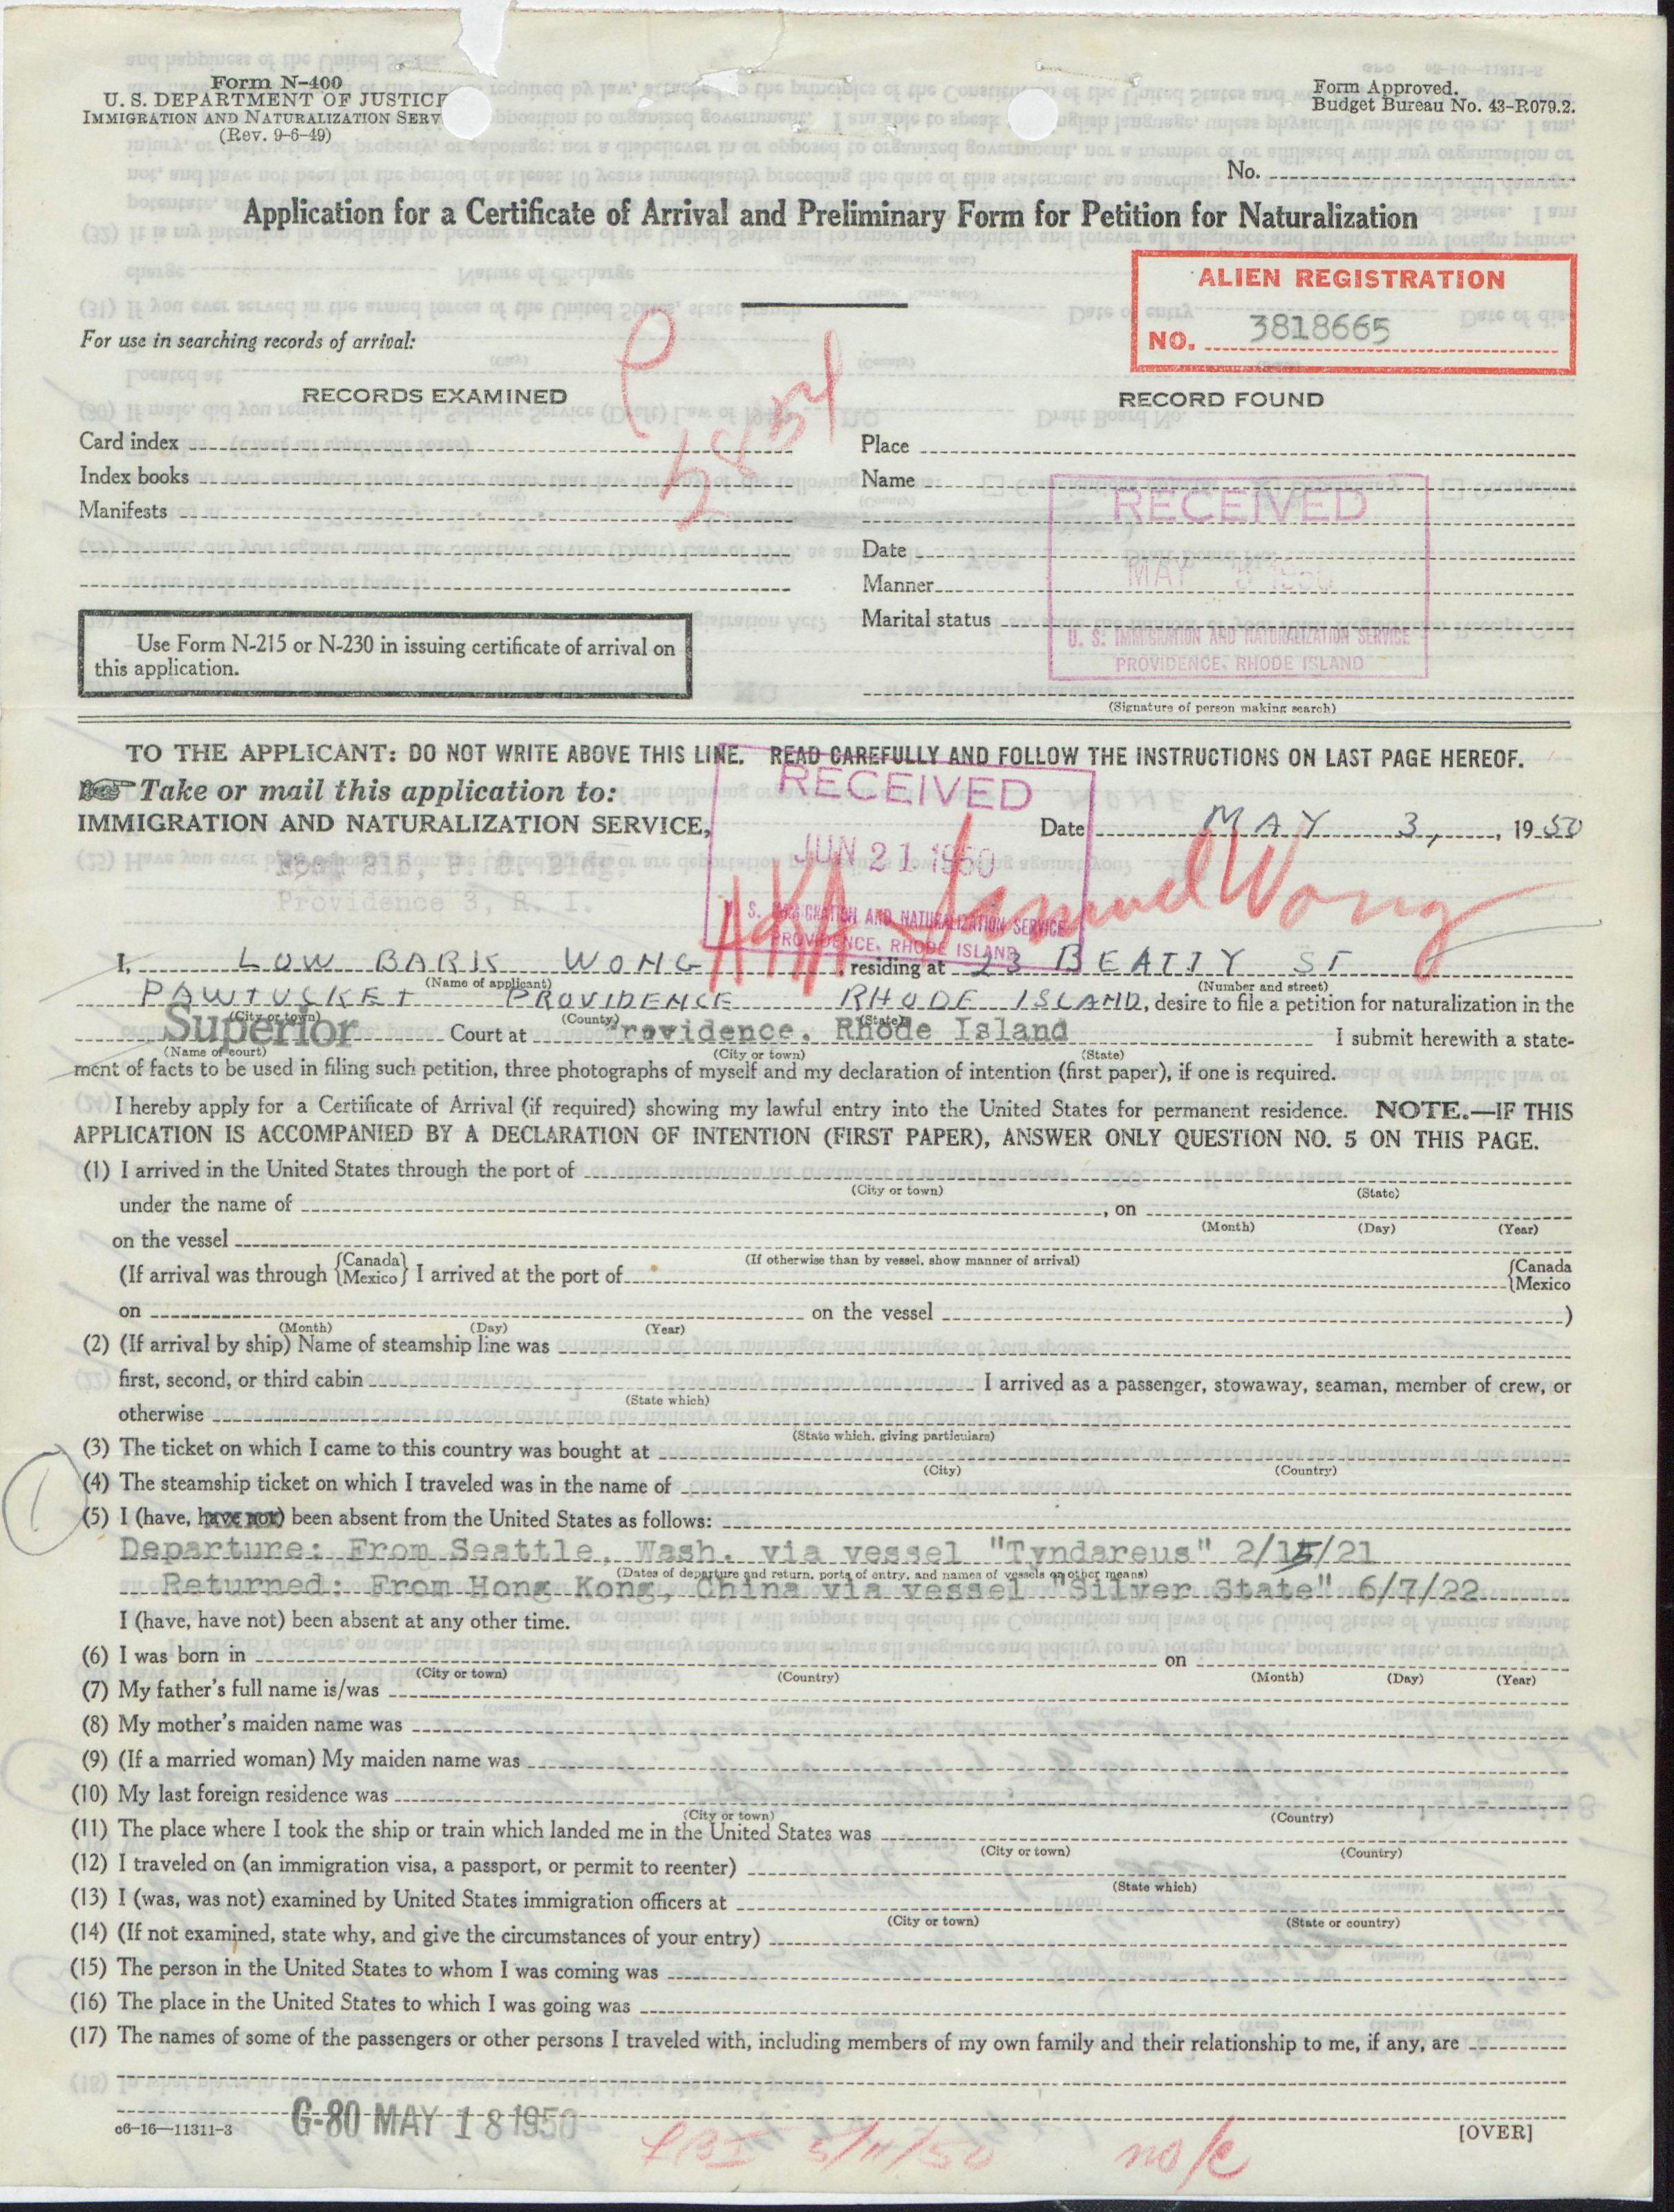 Form N-400
U. S. DEPARTMENT OF JUSTICE
IMMIGRATION AND NATURALIZATION SERV
(Rev. 9-6-49)
Form Approved.
Budget Bureau No. 43-R079.2.
No.
Application for a Certificate of Arrival and Preliminary Form for Petition for Naturalization
ALIEN REGISTRATION
NO. 3818665
For use in searching records of arrival:
RECORDS EXAMINED
RECORD FOUND
Card index
Index books
Manifests
Place
Name
Date
Manner
Marital status
RECEIVED
MAY 3 1950
U. S. IMMIGRATION AND NATURALIZATION SERVICE
PROVIDENCE, RHODE ISLAND
Use Form N-215 or N-230 in issuing certificate of arrival on
this application.
(Signature of person making search)
TO THE APPLICANT: DO NOT WRITE ABOVE THIS LINE. READ CAREFULLY AND FOLLOW THE INSTRUCTIONS ON LAST PAGE HEREOF.
Take or mail this application to:
IMMIGRATION AND NATURALIZATION SERVICE,
Room 215, P. O. Bldg.
Providence 3, R. I.
RECEIVED
JUN 21 1950
U. S. IMMIGRATION AND NATURALIZATION SERVICE
PROVIDENCE, RHODE ISLAND
Date MAY 3, 1950
AKA Samuel Wong
I, LOW BARK WONG residing at 23 BEATTY ST
(Name of applicant) (Number and street)
PAWTUCKET PROVIDENCE RHODE ISLAND, desire to file a petition for naturalization in the
(City or town) (County) (State)
Superior Court at Providence, Rhode Island I submit herewith a state-
(Name of court) (City or town) (State)
ment of facts to be used in filing such petition, three photographs of myself and my declaration of intention (first paper), if one is required.
I hereby apply for a Certificate of Arrival (if required) showing my lawful entry into the United States for permanent residence. NOTE.—IF THIS
APPLICATION IS ACCOMPANIED BY A DECLARATION OF INTENTION (FIRST PAPER), ANSWER ONLY QUESTION NO. 5 ON THIS PAGE.
(1) I arrived in the United States through the port of
(City or town) (State)
under the name of , on
(Month) (Day) (Year)
on the vessel
(If otherwise than by vessel, show manner of arrival)
(If arrival was through {Canada Mexico} I arrived at the port of {Canada Mexico
on on the vessel )
(Month) (Day) (Year)
(2) (If arrival by ship) Name of steamship line was
first, second, or third cabin I arrived as a passenger, stowaway, seaman, member of crew, or
(State which)
otherwise
(State which, giving particulars)
(3) The ticket on which I came to this country was bought at
(City) (Country)
(4) The steamship ticket on which I traveled was in the name of
(5) I (have, have not) been absent from the United States as follows:
Departure: From Seattle, Wash. via vessel "Tyndareus" 2/15/21
(Dates of departure and return, ports of entry, and names of vessels or other means)
Returned: From Hong Kong, China via vessel "Silver State" 6/7/22
I (have, have not) been absent at any other time.
(6) I was born in on
(City or town) (Country) (Month) (Day) (Year)
(7) My father's full name is/was
(8) My mother's maiden name was
(9) (If a married woman) My maiden name was
(10) My last foreign residence was
(City or town) (Country)
(11) The place where I took the ship or train which landed me in the United States was
(City or town) (Country)
(12) I traveled on (an immigration visa, a passport, or permit to reenter)
(State which)
(13) I (was, was not) examined by United States immigration officers at
(City or town) (State or country)
(14) (If not examined, state why, and give the circumstances of your entry)
(15) The person in the United States to whom I was coming was
(16) The place in the United States to which I was going was
(17) The names of some of the passengers or other persons I traveled with, including members of my own family and their relationship to me, if any, are
c6-16—11311-3
G-80 MAY 18 1950
5/11/50
no/c
[OVER]